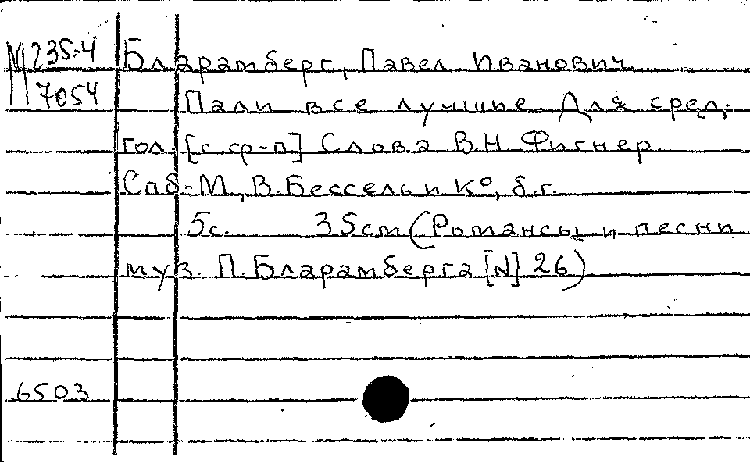 М 235-4
7054
Бларамберг, Павел Иванович
Пали все лучшие Для сред.
гол. [с ср-п] Слова В.Н. Фигнер
Спб.-М., В. Бессель и К°, б.г.
5с. 35см (Романсы и песни
муз. П. Бларамберга [N] 26)
6503